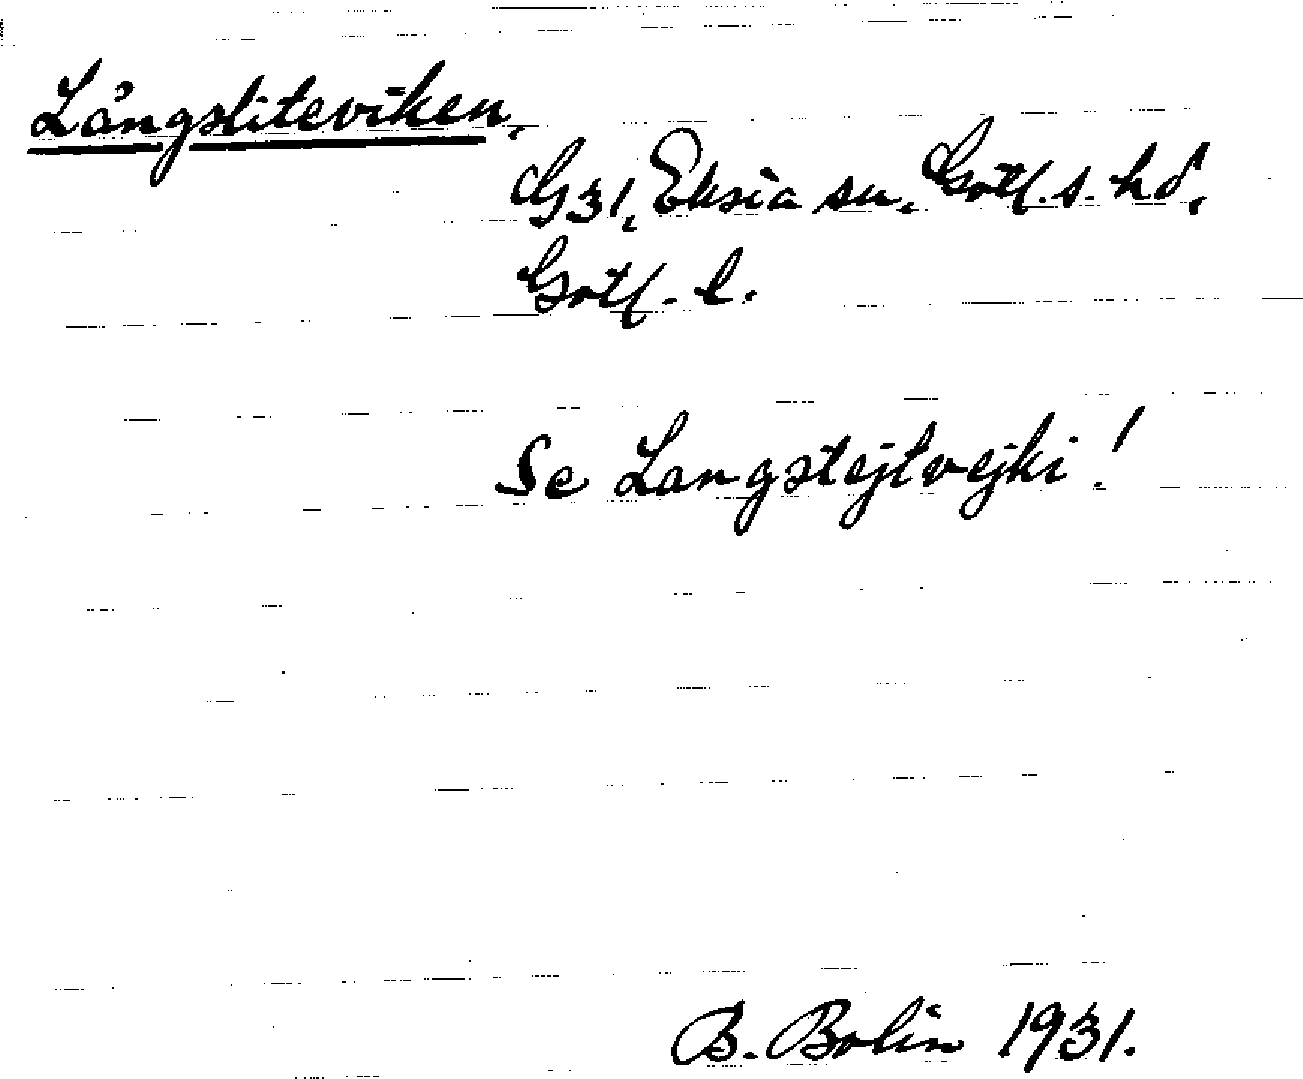 Långsliteviken,
G31, Eksta sn. Gotl. s. hd,
Gotl. l.
Se Langstejtvejki!
B. Bolin 1931.